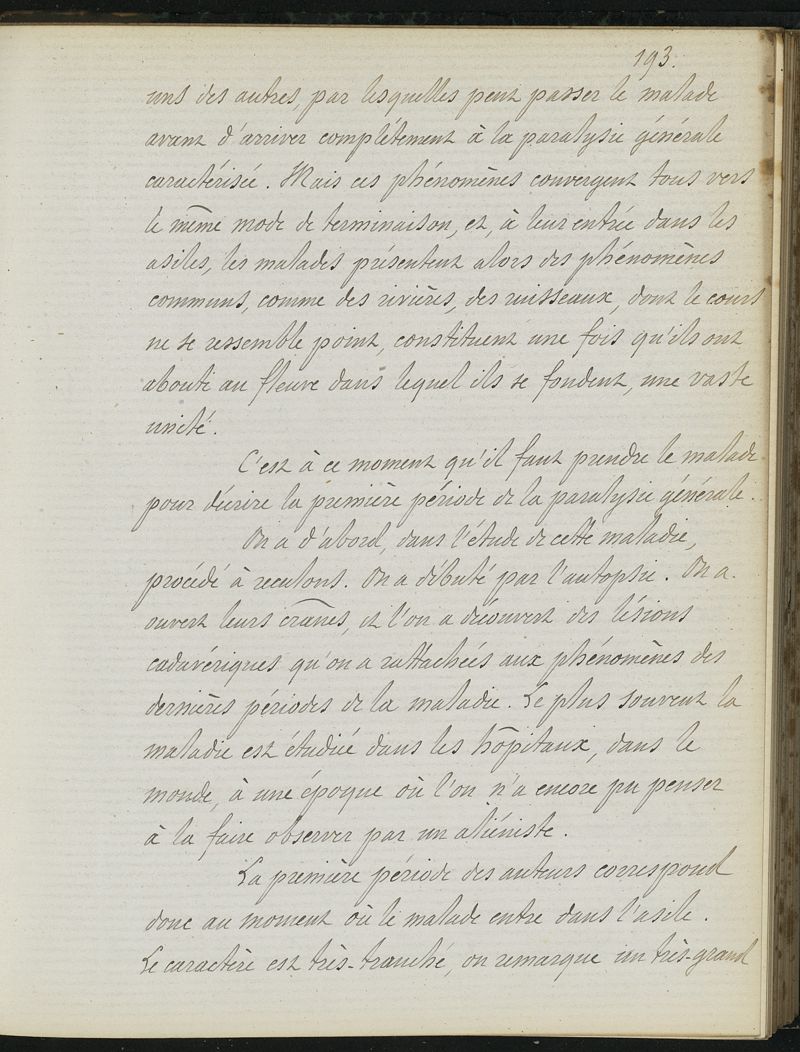 193.
uns des autres, par lesquelles peut passer le malade
avant d'arriver complétement à la paralysie générale
caractérisée. Mais ces phénomènes convergent tous vers
le même mode de terminaison, et, à leur entrée dans les
asiles, les malades présentent alors des phénomènes
communs, comme des rivières, des ruisseaux, dont le cours
ne se ressemble point, constituent une fois qu'ils ont
abouti au fleuve dans lequel ils se fondent, une vaste
unité.
C'est à ce moment qu'il faut prendre le malade
pour décrire la première période de la paralysie générale.
On a d'abord, dans l'étude de cette maladie,
procédé à reculons. On a débuté par l'autopsie. On a
ouvert leurs crânes, et l'on a découvert des lésions
cadavériques qu'on a rattachées aux phénomènes des
dernières périodes de la maladie. Le plus souvent la
maladie est étudiée dans les hôpitaux, dans le
monde, à une époque où l'on n'a encore pu penser
à la faire observer par un aliéniste.
La première période des auteurs correspond
donc au moment où le malade entre dans l'asile.
Le caractère est très-tranché, on remarque un très-grand